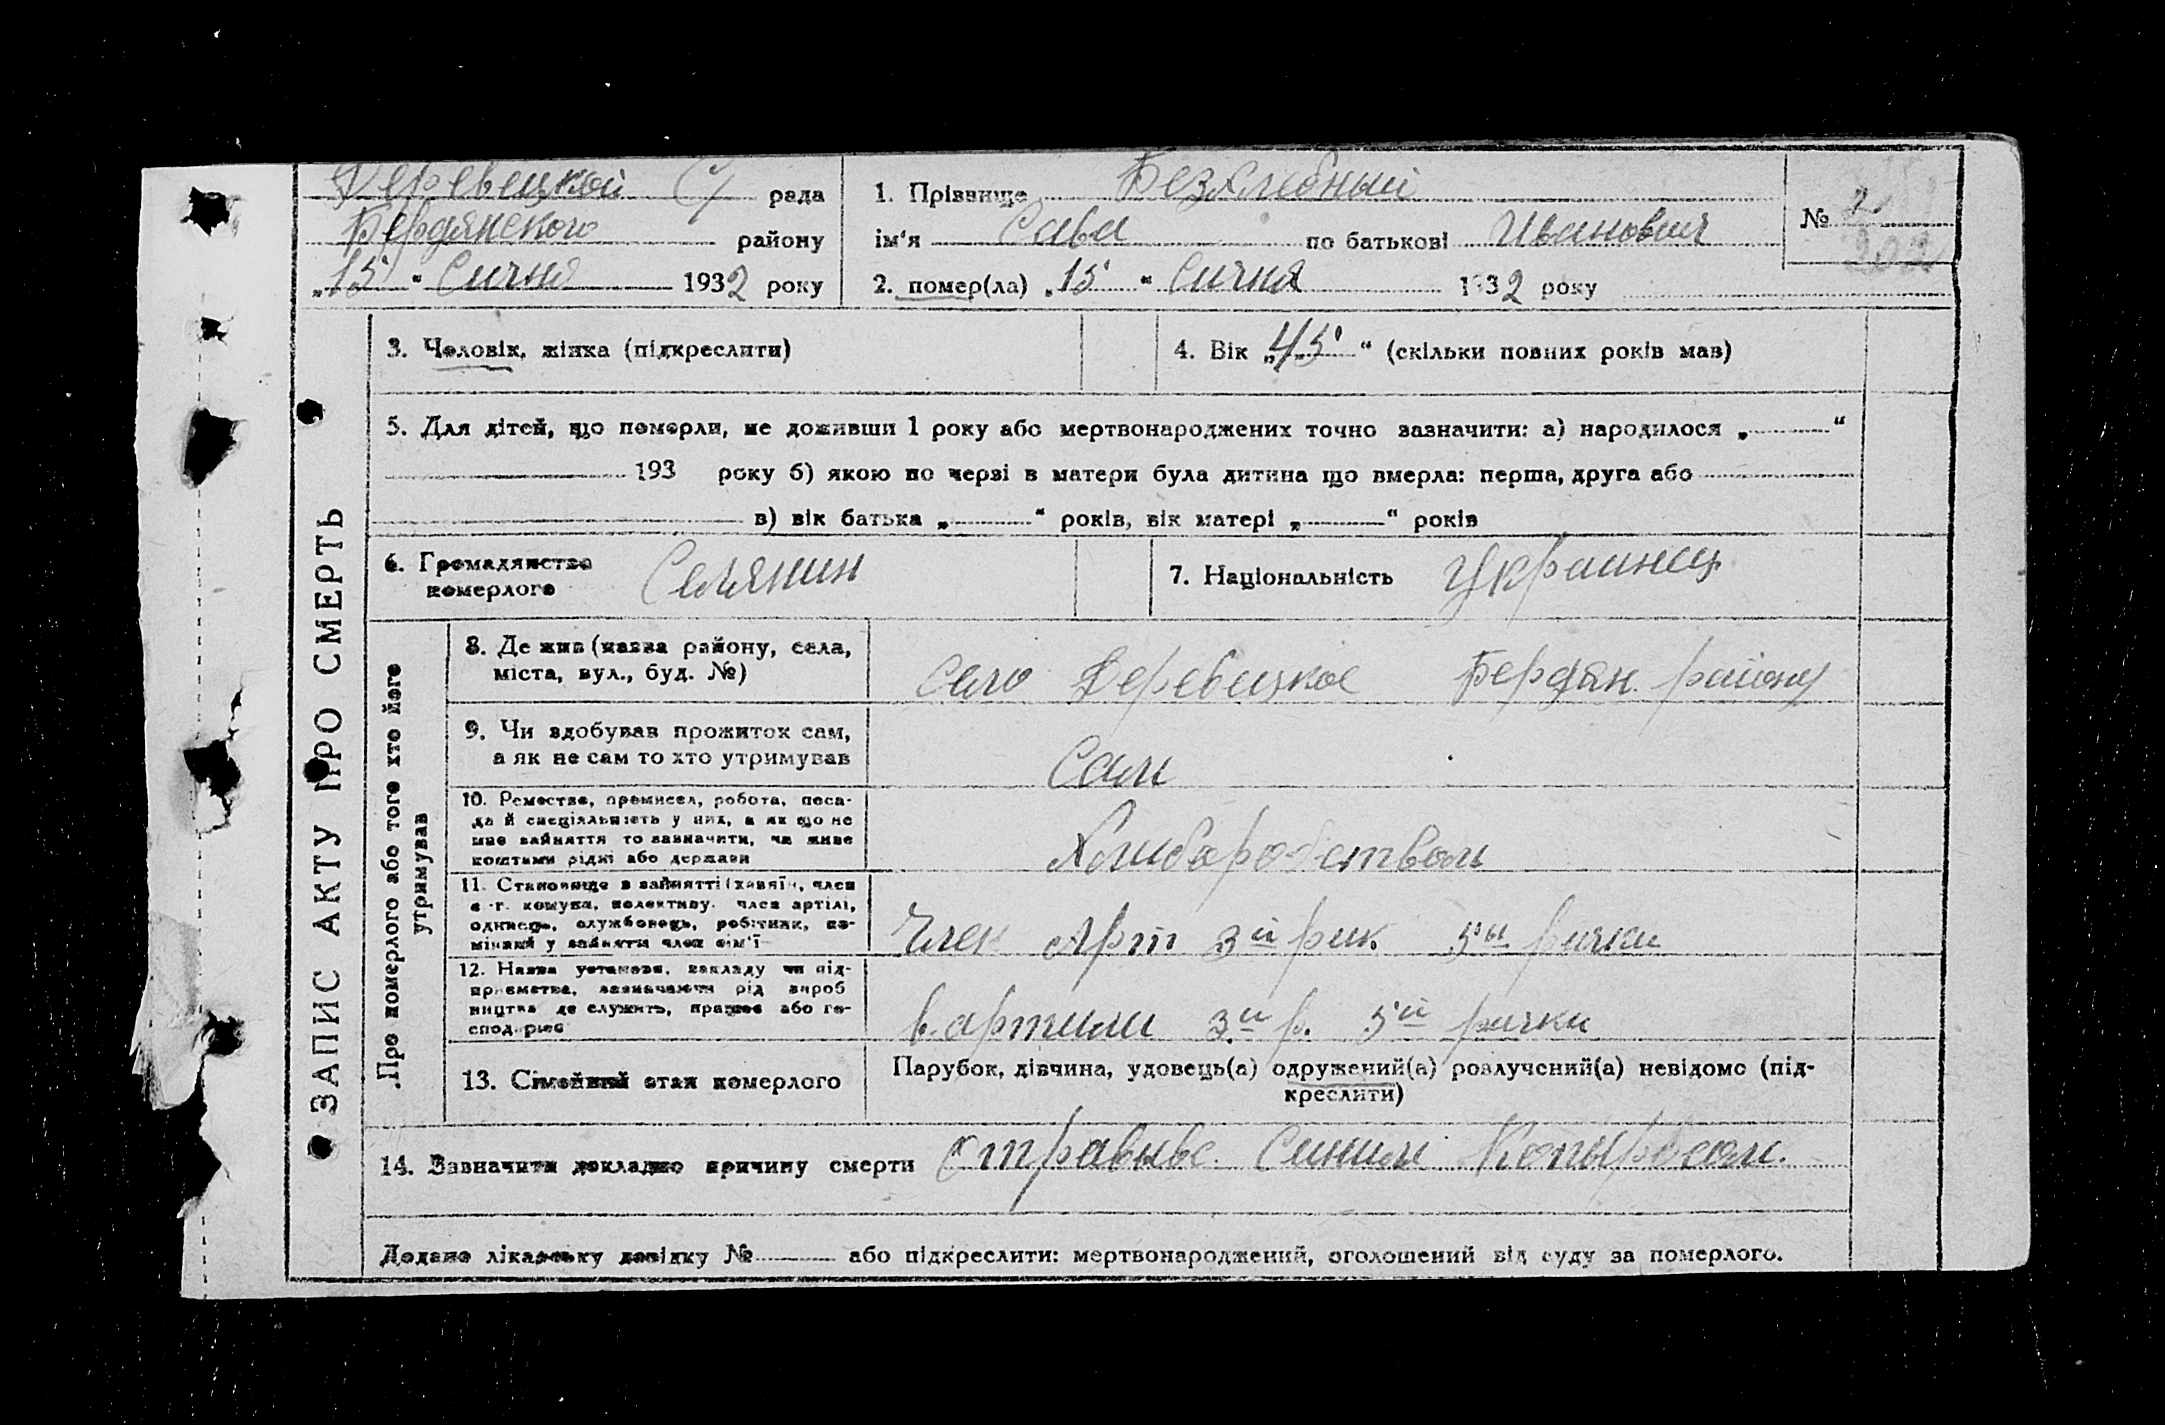 Деревецкой С/ рада
Бердянского району
„15“ Сичня 1932 року
1. Прізвище Безхлебный
ім'я Сава по батькові Иванович
2. помер(ла) „15“ Сичня 1932 року
№ 2
302
ЗАПИС АКТУ ПРО СМЕРТЬ
3. Чоловік, жінка (підкреслити)
4. Вік „45“ (скільки повних років мав)
5. Для дітей, що померли, не доживши 1 року або мертвонароджених точно зазначити: а) народилося „ “
193 року б) якою по черзі в матери була дитина що вмерла: перша, друга або
в) вік батька „ “ років, вік матері „ “ років
6. Громадянство
померлого Селянин
7. Національність Украинец
Про померлого або того хто його
утримував
8. Де жив (назва району, села,
міста, вул., буд. №)
село Деревецкое Бердян. району
9. Чи здобував прожиток сам,
а як не сам то хто утримував
Сам
10. Ремество, промисел, робота, поса-
да й спеціяльність у них, а як що не
мав зайняття то зазначити, чи живе
коштами рідні або держави
Хлиборобством
11. Становище в зайнятті (хазяїн, член
с.-г. комуни, колективу, член артілі,
одинець, службовець, робітник, по-
мічний у зайнятті член сім'ї
Член Арт 3й рик. 5ы рички
12. Назва установи, закладу чи під-
приємства, зазначаючи рід вироб
ництва де служить, працює або го-
сподарює
в артили 3й р. 5й рички
13. Сімейний стан померлого
Парубок, дівчина, удовець(а) одружений(а) розлучений(а) невідомо (під-
креслити)
14. Зазначити докладно причину смерти отравывс. Синим Копыросом.
Додано лікарську довідку № або підкреслити: мертвонароджений, оголошений від суду за померлого.